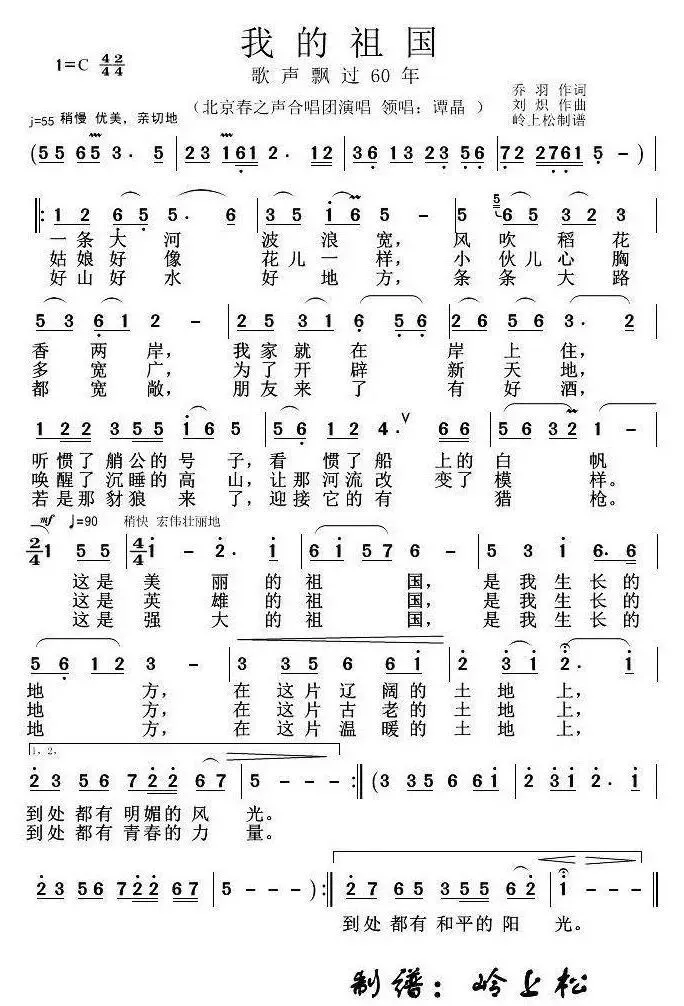 我的祖国
1=C 4/4 2/4
歌声飘过60年
（北京春之声合唱团演唱 领唱：谭晶 ）
乔羽作词
刘炽作曲
岭上松制谱
j=55 稍慢 优美，亲切地
(5 5 6 5 3· 5 | 2 3 1 6 1 2· 1 2 | 3 6 1 3 2 3 5 | 7 2 2 7 6 1 5 - ) |
‖: 1 2 6 5 5· 6 | 3 5 1 6 5 - | 5 5 6 5 3 2 3 |
一条大河 波浪宽， 风吹稻花
姑娘好像 花儿一样， 小伙儿心胸
好山好水 好地方， 条条大路
5 3 6 1 2 - | 3 5 3 1 6 5 6 | 2 6 5 6 3· 2 |
香两岸， 我家就在 岸上住，
多宽广， 为了开辟 新天地，
都宽敞， 朋友来了 有好酒，
1 2 2 3 5 5 1 6 5 | 5 6 1 2 4· ∨ 6 6 | 5 6 3 2 1 - |
听惯了艄公的号子，看惯了船上的白帆
唤醒了沉睡的高山，让那河流改变了模样。
若是那豺狼来了，迎接它的有猎枪。
mf ♩=90 稍快 宏伟壮丽地
2/4 1 5 5 | 4/4 1 - 2· 1 | 6 1 5 7 6 - | 5 3 1 6· 6 |
这是美丽的祖国， 是我生长的
这是英雄的祖国， 是我生长的
这是强大的祖国， 是我生长的
5 6 1 2 3 - | 3 3 5 6 6 1 | 2 3 1 2· 1 |
地方， 在这片辽阔的土地上，
地方， 在这片古老的土地上，
地方， 在这片温暖的土地上，
1、2、
2 3 5 6 7 2 2 6 7 | 5 - - - :‖ (3 3 5 6 6 1 | 2 3 1 2· 1 |
到处都有明媚的风光。
到处都有青春的力量。
2 3 5 6 7 2 2 6 7 | 5 - - - ):‖ 2 7 6 5 3 5 5 6 2 | 1 - - - ‖
到处都有和平的阳光。
制谱：岭上松